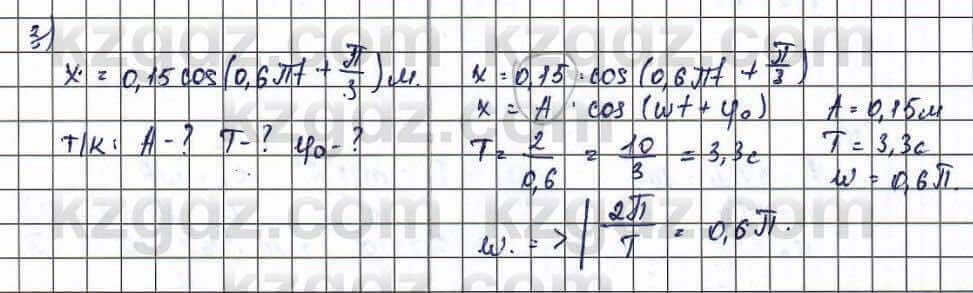 3)
x = 0,15 cos(0,6πt + π/3) м.
т/к: A - ? T - ? φ₀ - ?
x = 0,15 · cos (0,6πt + π/3)
x = A · cos (ωt + φ₀)
T = 2/0,6 = 10/3 = 3,3с
ω. = > | 2π/T = 0,6π.
A = 0,15м
T = 3,3с
ω = 0,6π.
kzgdz.com